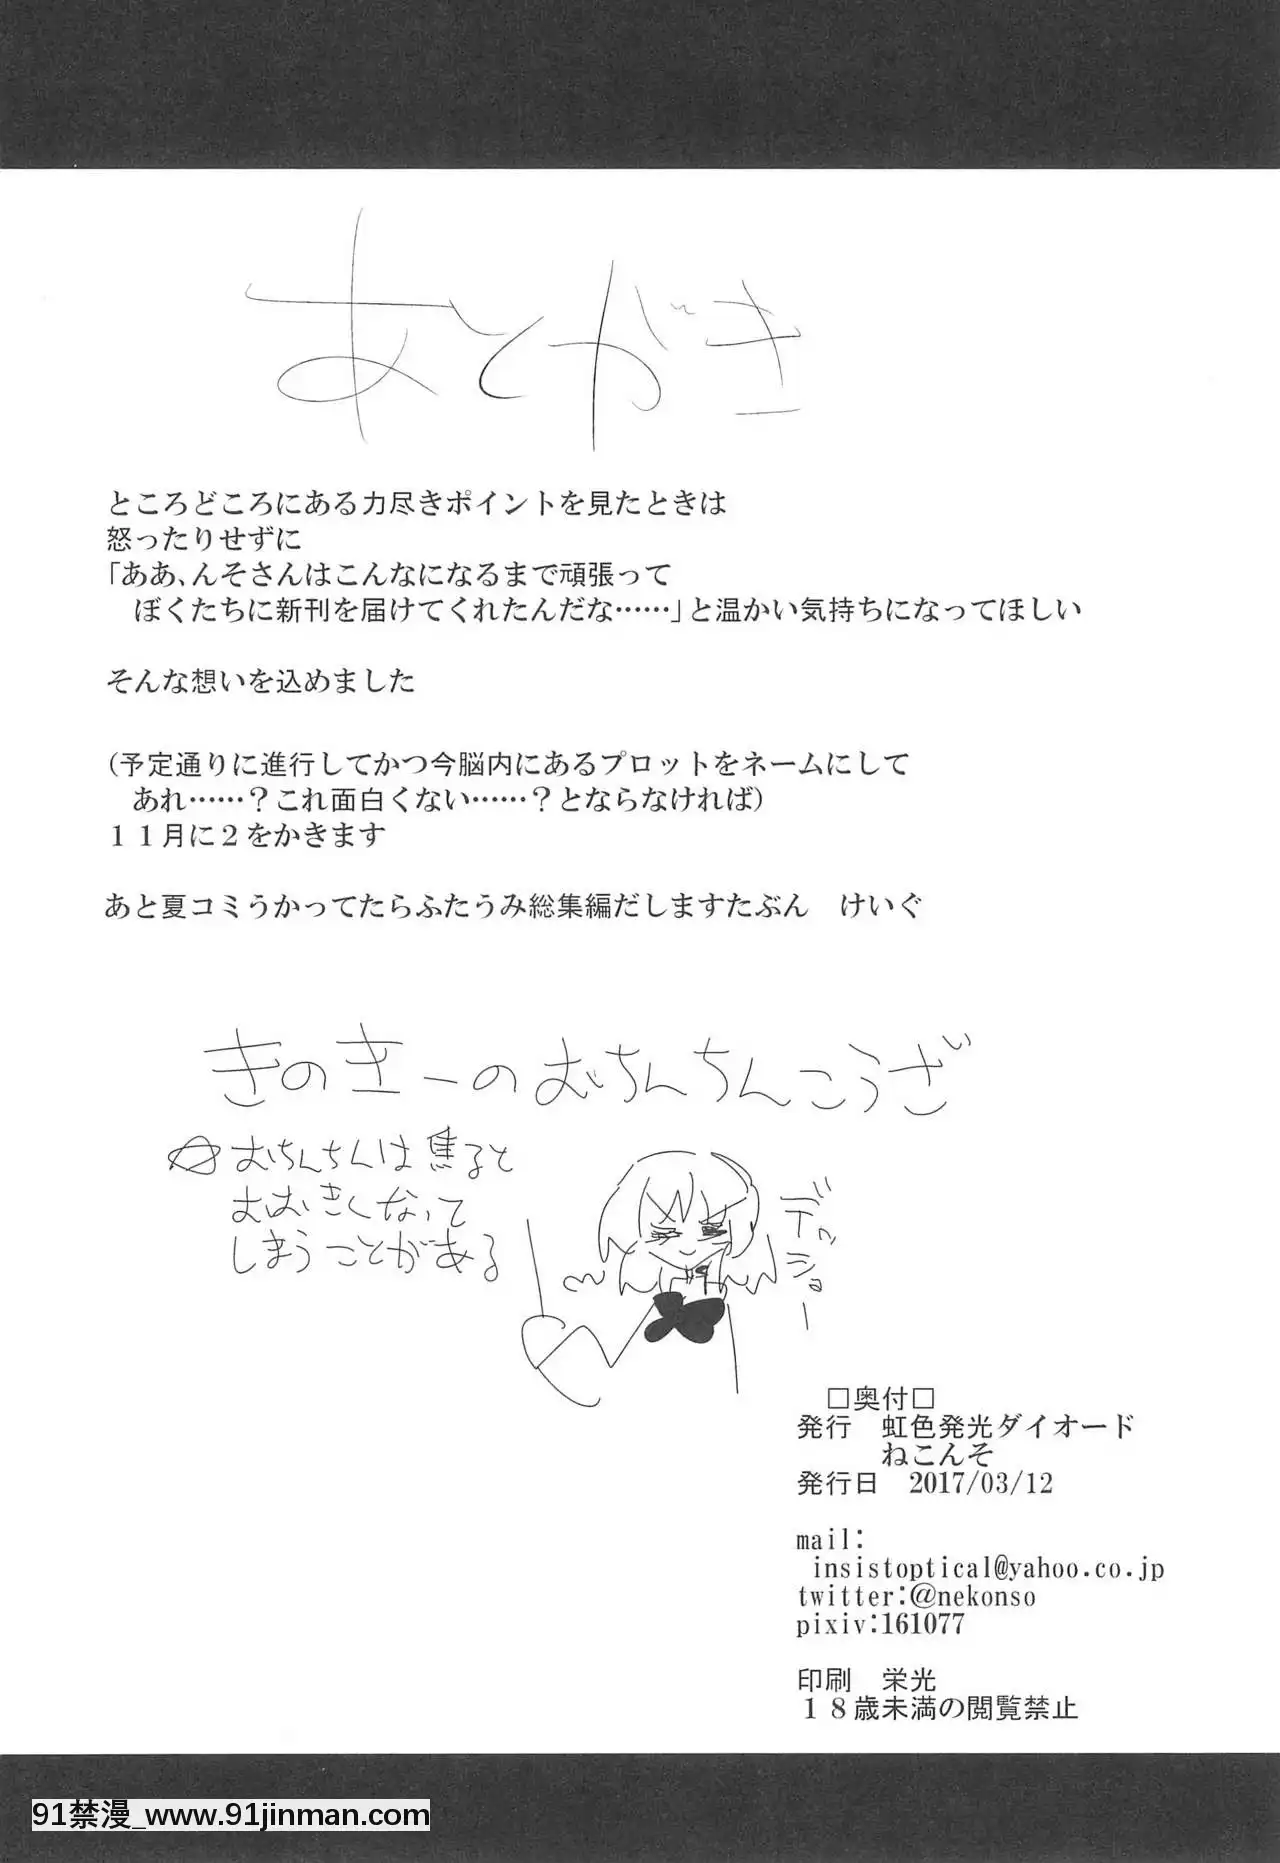 あとがき
ところどころにある力尽きポイントを見たときは
怒ったりせずに
「ああ、んそさんはこんなになるまで頑張って
ぼくたちに新刊を届けてくれたんだな……」と温かい気持ちになってほしい
そんな想いを込めました
(予定通りに進行してかつ今脳内にあるプロットをネームにして
あれ……？これ面白くない……？とならなければ)
１１月に２をかきます
あと夏コミうかってたらふたうみ総集編だしますたぶん　けいぐ
きのきーのおちんちんこうざ
☆おちんちんは焦ると
おおきくなって
しまうことがある
デッショー
□奥付□
発行　虹色発光ダイオード
ねこんそ
発行日　2017/03/12
mail:
insistoptical@yahoo.co.jp
twitter:@nekonso
pixiv:161077
印刷　栄光
１８歳未満の閲覧禁止
91禁漫_www.91jinman.com